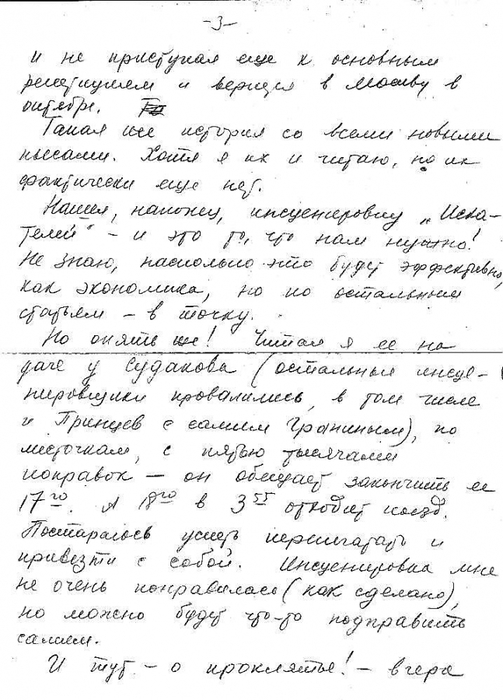 -3-
и не приступая еще к основным
репетициям и вернулся в Москву в
октябре.
Такая же история со всеми новыми
пьесами. Хотя я их и читаю, но их
фактически еще нет.
Нашел, наконец, инсценировку „Иска-
телей" - и это то, что нам нужно!
Не знаю, насколько это будет эффективно,
как экономика, но по остальным
статьям - в точку.
Но опять же! Читал я ее на
даче у Судакова (остальные инсце-
нировщики провалились, в том числе
и Принцев с самим Граниным), по
листочкам, с пятью тысячами
поправок — он обещает закончить ее
17го. А 18го в 3 55 отходит поезд.
Постараюсь успеть перепечатать и
привезти с собой. Инсценировка мне
не очень понравилась (как сделано),
но можно будет что-то подправить
самим.
И тут - о проклятье! - вчера